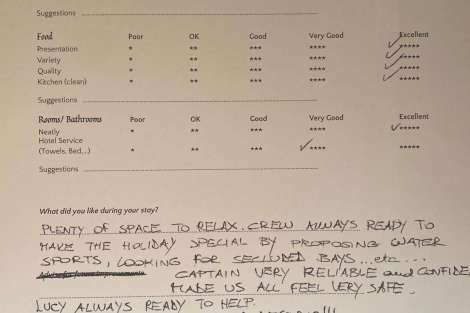 Suggestions
Food Poor OK Good Very Good Excellent
Presentation * ** *** **** *****
Variety * ** *** **** *****
Quality * ** *** **** *****
Kitchen (clean) * ** *** **** *****
Suggestions
Rooms/ Bathrooms Poor OK Good Very Good Excellent
Neatly * ** *** **** *****
Hotel Service
(Towels, Bed...) * ** *** **** *****
Suggestions
What did you like during your stay?
PLENTY OF SPACE TO RELAX. CREW ALWAYS READY TO
MAKE THE HOLIDAY SPECIAL BY PROPOSING WATER
SPORTS, LOOKING FOR SECLUDED BAYS ... etc ...
CAPTAIN VERY RELIABLE and CONFIDE
MADE US ALL FEEL VERY SAFE.
LUCY ALWAYS READY TO HELP.